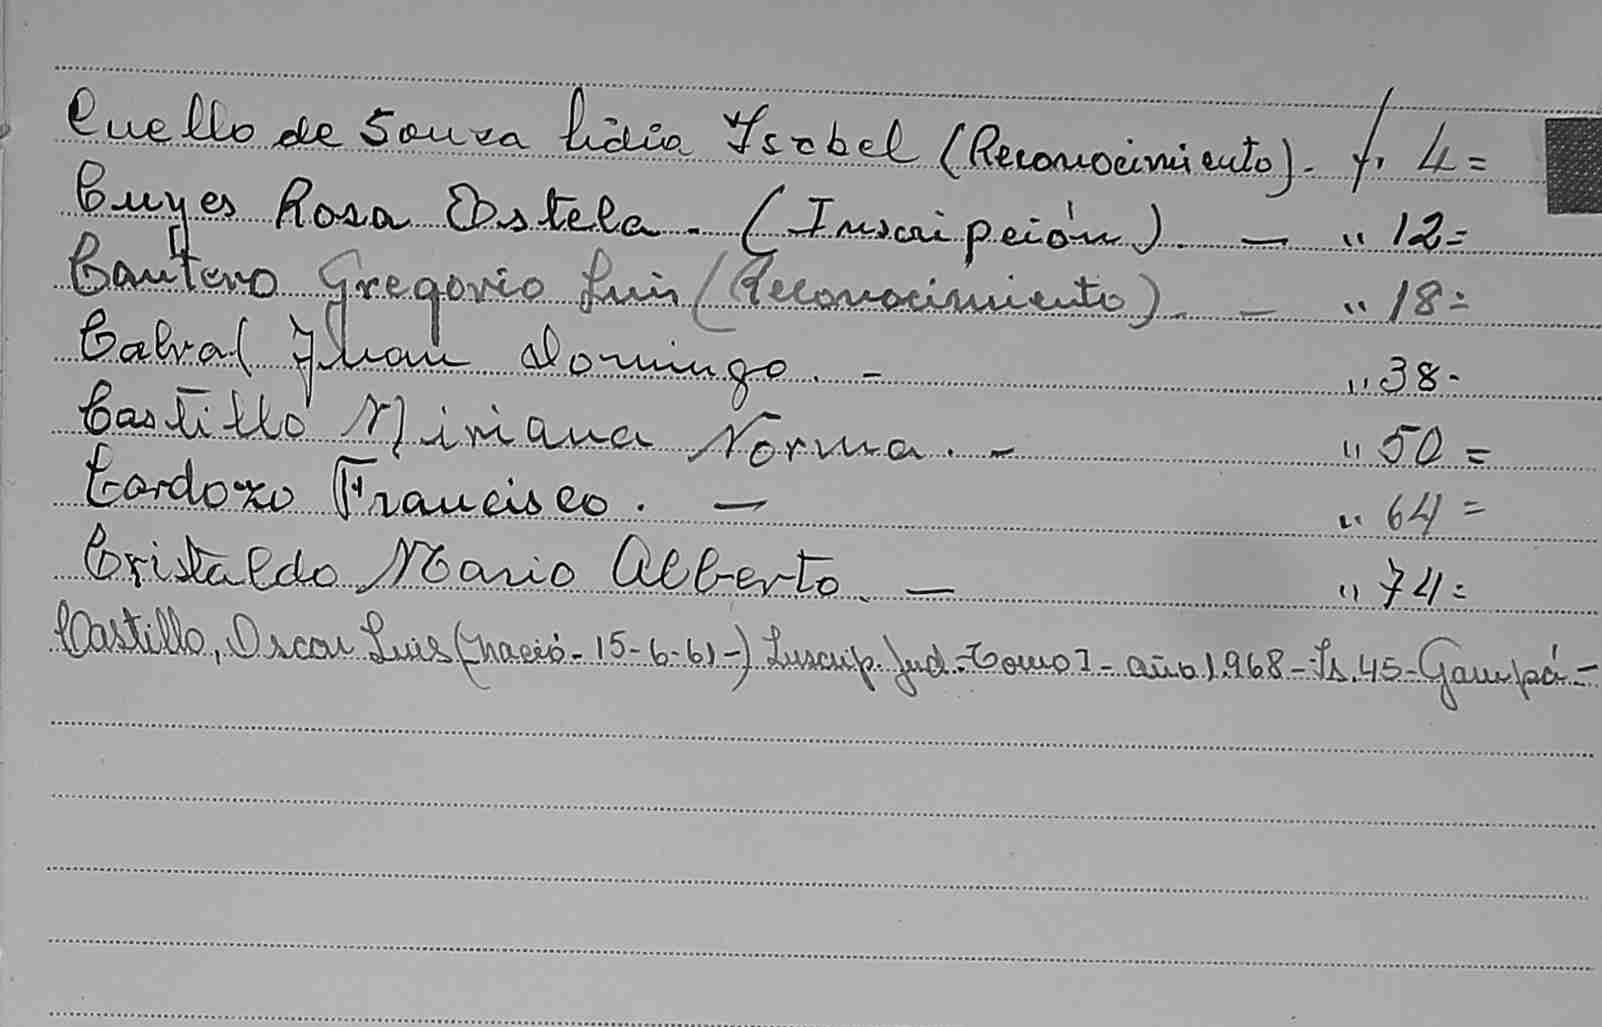 Cuello de Souza Lidia Ysabel (Reconocimiento). f. 4=
Cuyes Rosa Estela. (Inscripción). — " 12=
Cantero Gregorio Luis (Reconocimiento). — " 18=
Cabral Juan Domingo. - " 38-
Castillo Miriana Norma. - " 50=
Cardozo Francisco. — " 64=
Cristaldo Mario Alberto. — " 74=
Castillo, Oscar Luis (nació-15-6-61-) Inscrip. Jud.-Tomo I-año 1.968-Fs.45-Garupá-